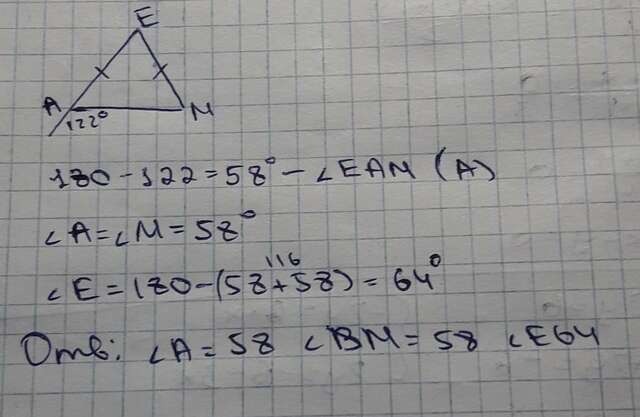 E
A
M
122°
180-122=58°-∠EAM (A)
∠A=∠M=58°
116
∠E=180-(58+58)=64°
Отв: ∠A=58 ∠BM=58 ∠E64